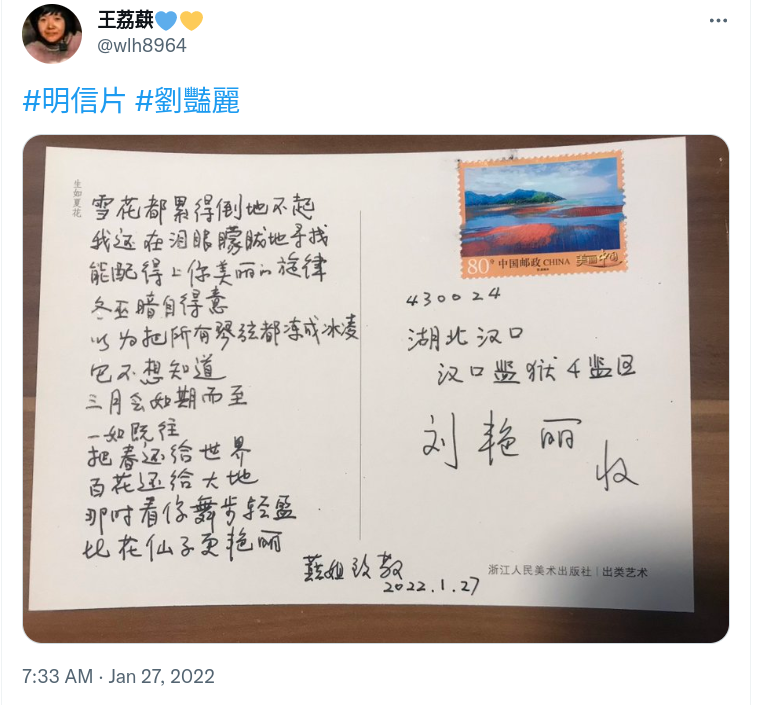 王荔蕻💙💛
@wlh8964
#明信片 #劉豔麗
生如夏花
雪花都累得倒地不起
我还在泪眼朦胧地寻找
能配得上你美丽的旋律
冬巫暗自得意
以为把所有琴弦都冻成冰凌
它不想知道
三月会如期而至
一如既往
把春还给世界
百花还给大地
那时看你舞步轻盈
比花仙子更艳丽
蕻姐致敬
2022.1.27
80分 中国邮政 CHINA 美丽中国
430024
湖北汉口
汉口监狱4监区
刘艳丽
收
浙江人民美术出版社 | 出类艺术
7:33 AM · Jan 27, 2022